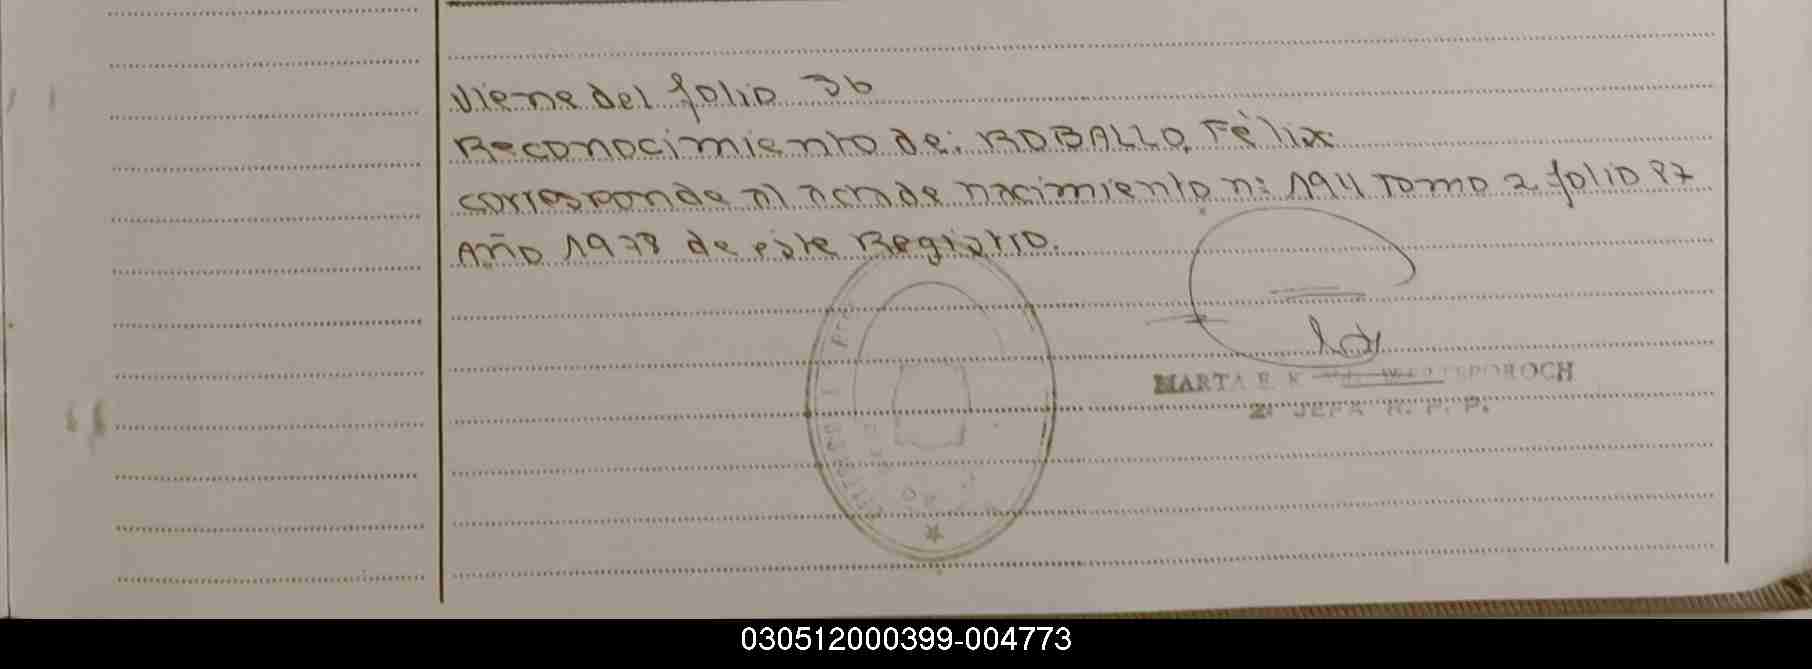 Viene del folio 36
Reconocimiento de: ROBALLO, Félix
corresponde al acta de nacimiento n: 1911 Tomo 2 folio 87
Año 1978 de este Registro.
MARTA E. K
POROCH
2: JEFA R. P. P.
030512000399-004773